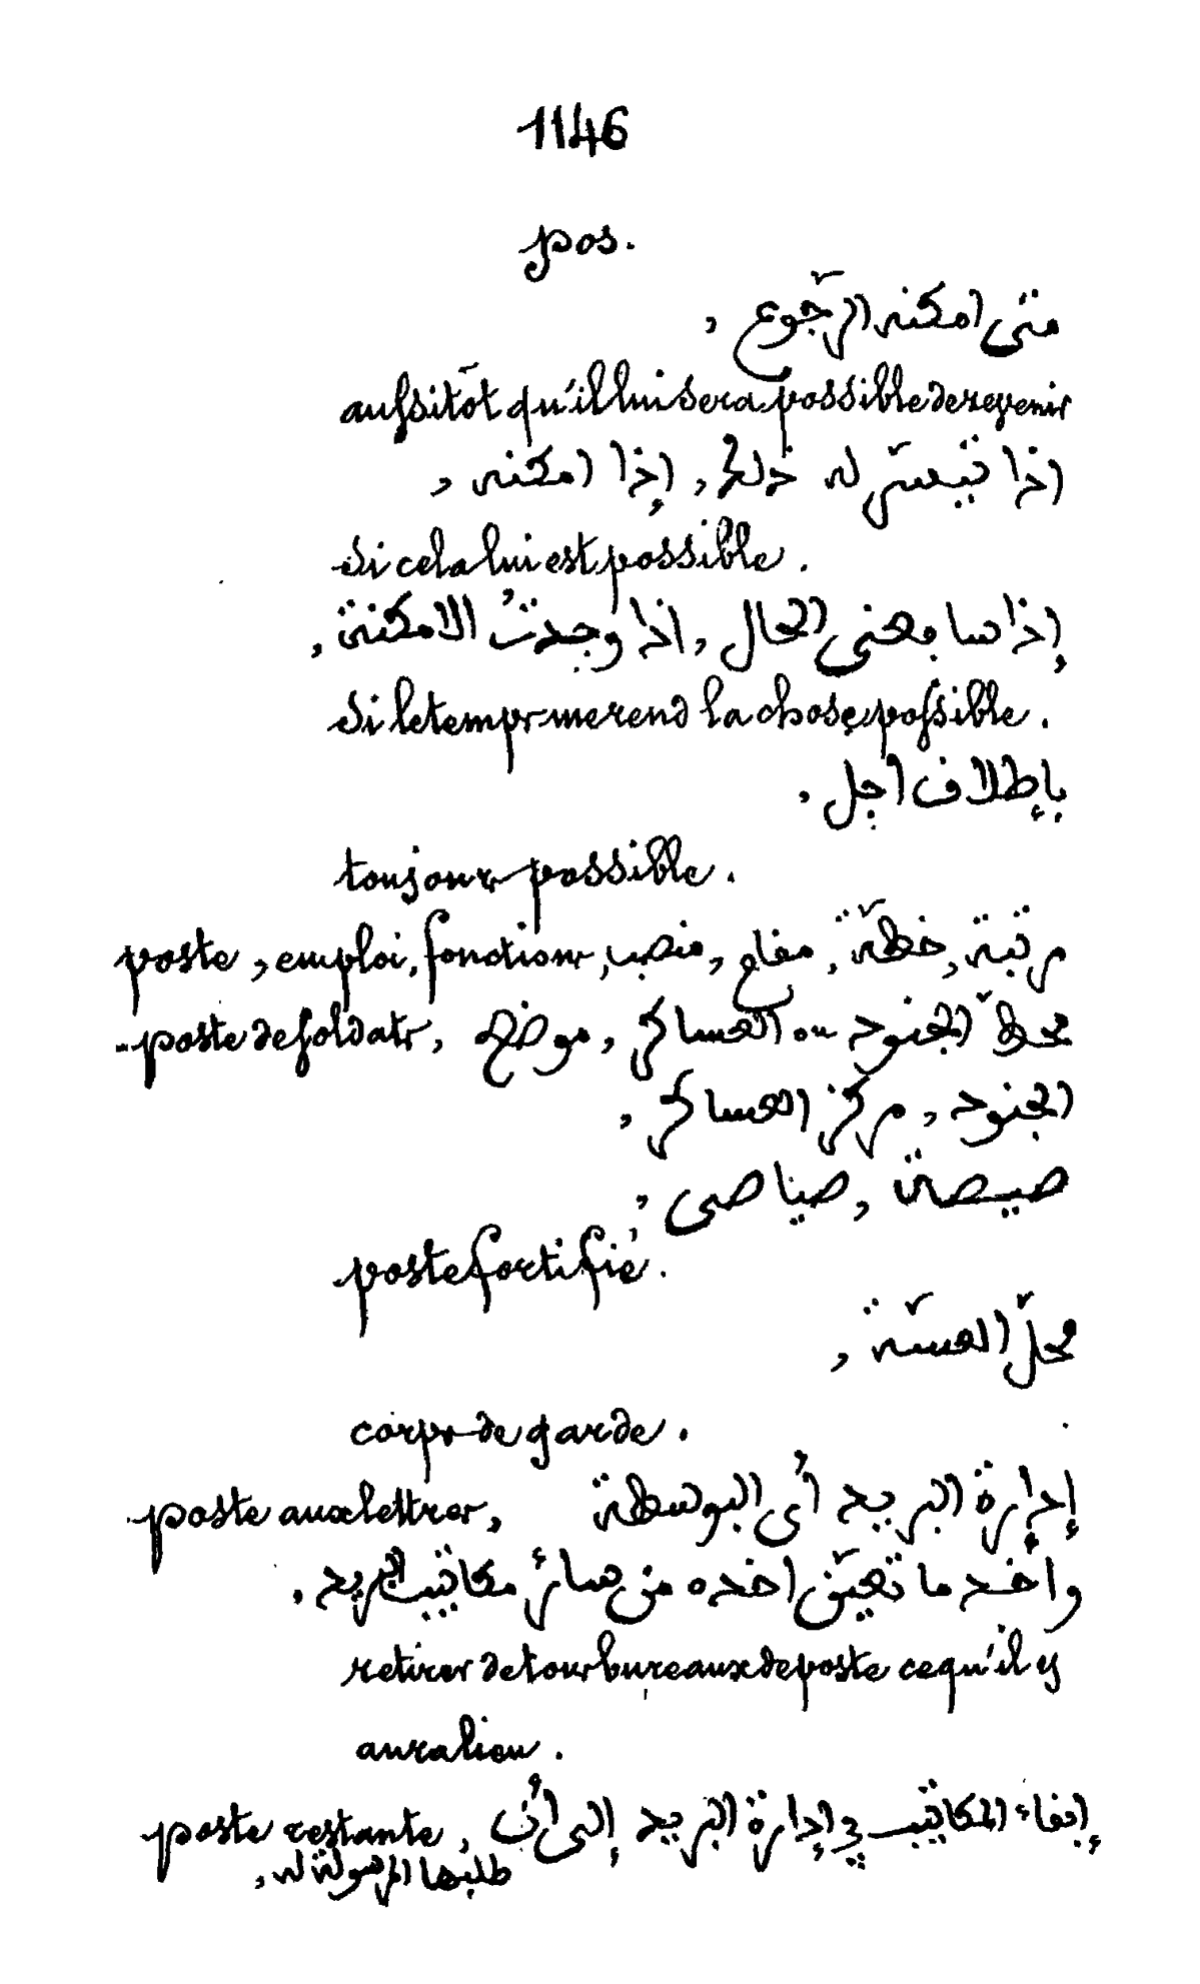 1146
pos.
متى امكنه الرّجوع ,
aussitôt qu'il lui sera possible de revenir
اذا تيسّر له ذلك , إذا امكنه ,
si cela lui est possible.
إذا سا بعنى الحال , اذا وجدتُ الامكنة ,
si le temps me rend la chose possible.
بإطلاق اجل ,
toujours possible.
poste, emploi, fonctions, منصب , مقام , خطّة , مرتبة
poste de soldats, محطّ الجنود ou العساكر , موضع
الجنود , مركز العساكر ,
صيصة , صياصى ,
poste fortifié.
محلّ العسّة ,
corps de garde.
poste aux lettres, إدارة البريد أى البوسطة
وأخد ما تعيّن اخده من سائر مكاتيب البريد ,
retirer de tous bureaux de poste ce qu'il y
aura lieu.
poste restante, إبقاء المكاتيب في إدارة البريد إلى أن
طلبها المرسولة له ,